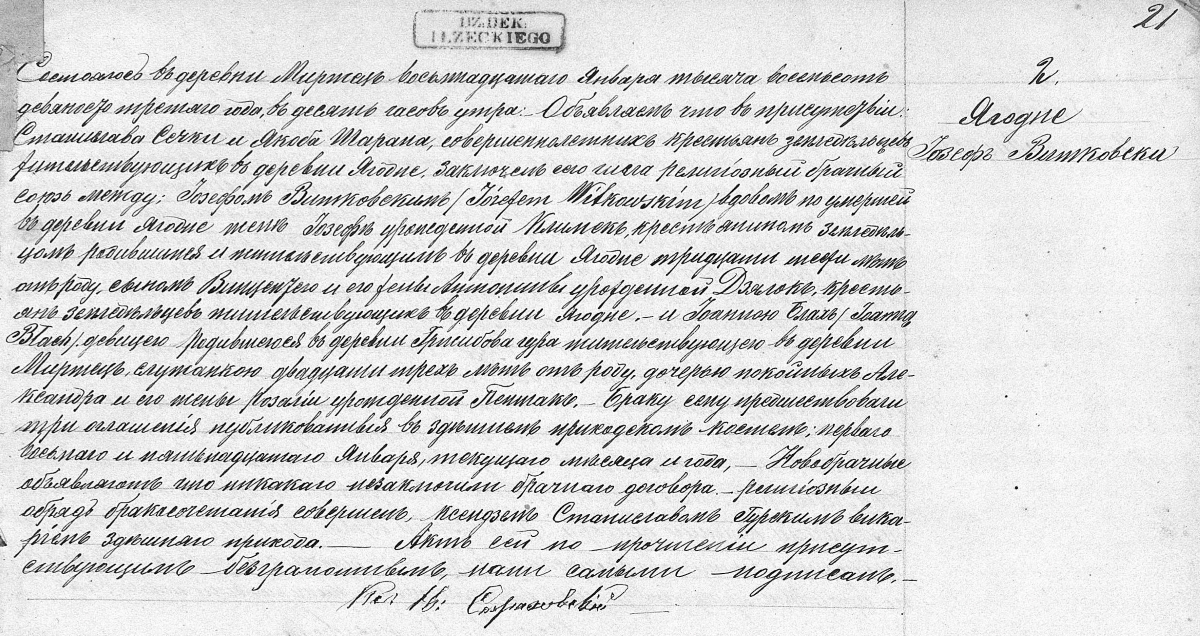 UZ.DEK.
IŁZECKIEGO
21
2.
Ягодне
Іозефъ Витковски
Состоялось въ деревни Миртецъ восьмнадцатаго Января тысяча восемьсотъ
девяносто третяго года, въ десять часовъ утра: Объявляемъ что въ присутствіи:
Станислава Сечки и Якоба Шарана, совершеннолетнихъ крестьянъ земледѣльцевъ
жительствующихъ въ деревни Ягодне, заключенъ сего числа религіозный брачный
союзъ между: Іозефомъ Витковскимъ / Józefem Witkowskim / вдовемъ по умершей
въ деревни Ягодне женѣ Іозефѣ урожденной Климекъ, крестьяниномъ земледѣль-
цомъ родившимся и жительствующимъ въ деревни Ягодне тридцати лѣтъ
отъ роду, сыномъ и его жены Антонины урожденной крестъ-
янъ земледѣльцевъ жительствующихъ въ деревни Ягодне. – и Іоанною Блахъ / Joanną
Błach / девицею родившеюся въ деревни Гржибова гура жительствующею въ деревни
Миртецъ, служанкою двадцати трехъ лѣтъ отъ роду, дочерью покойныхъ Але-
ксандра и его жены Розаліи урожденной Пентакъ, – Браку сему предшествовали
три оглашенія публикованныя въ здѣшнемъ приходскомъ костелѣ: перваго
восьмаго и пятьнадцатаго Января, текущаго мѣсяца и года, – Новобрачные
объявляютъ что никакаго незаключили брачнаго договора. – религіозный
обрядъ бракосочетанія совершенъ, ксендземъ Станиславомъ Гурскимъ вика-
ріемъ здѣшнаго прихода. – Актъ сей по прочтеніи присут-
ствующимъ безграмотнымъ, нами самыми подписанъ. –
Кс.